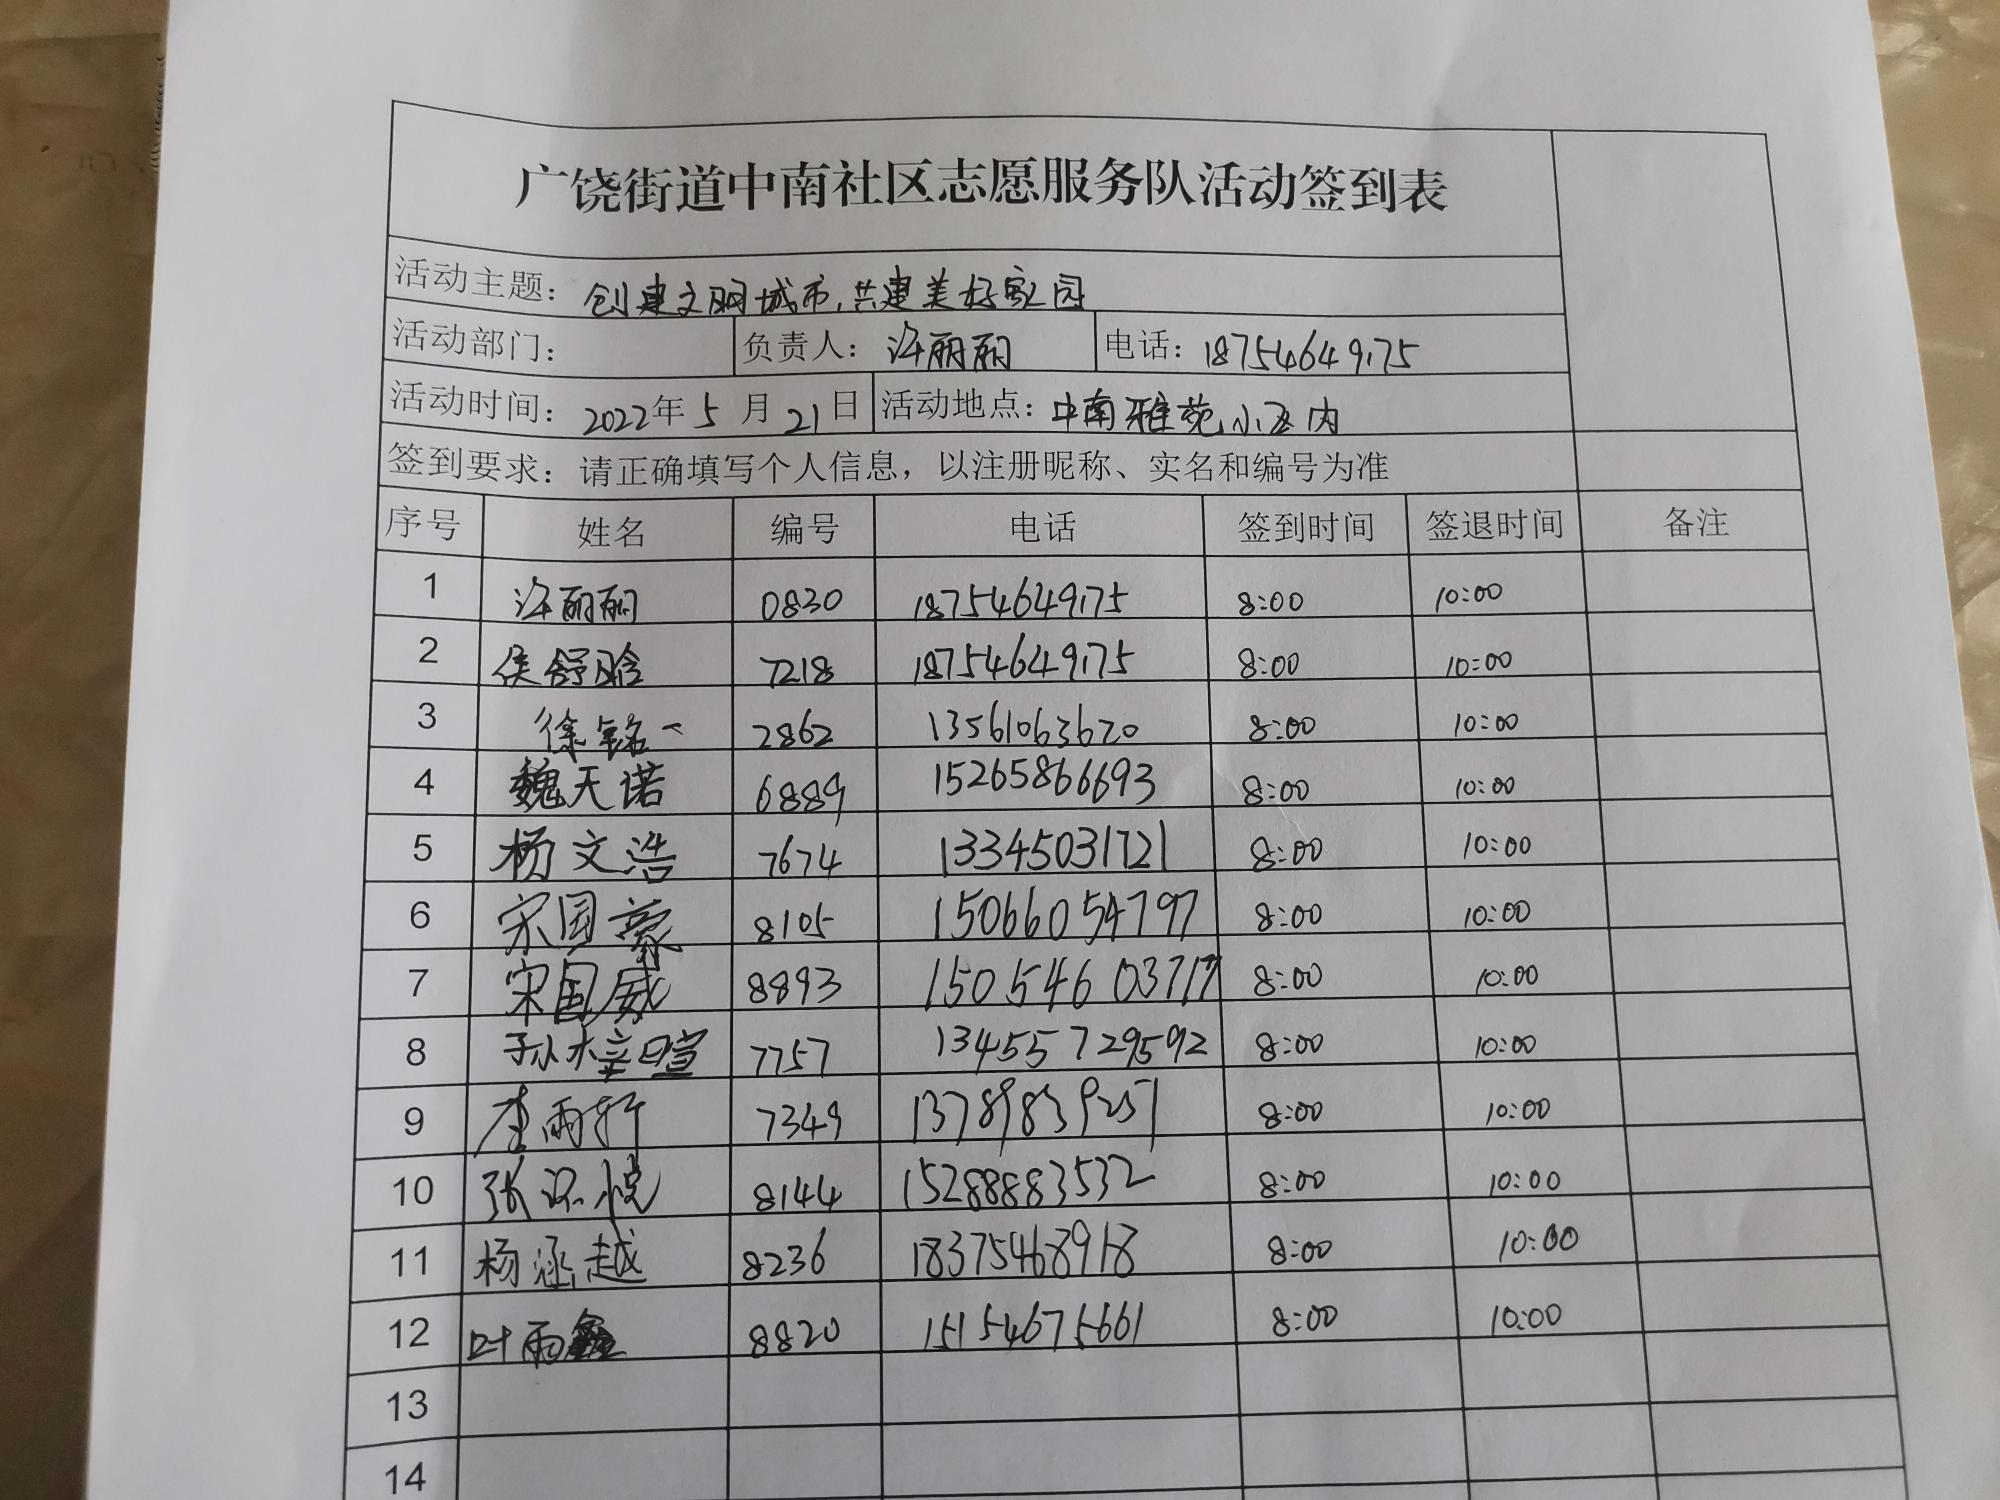 广饶街道中南社区志愿服务队活动签到表
活动主题：创建文明城市，共建美好家园
活动部门： 负责人：许丽丽 电话：18754649175
活动时间：2022年5月21日 活动地点：中南雅苑小区内
签到要求：请正确填写个人信息，以注册昵称、实名和编号为准
序号 姓名 编号 电话 签到时间 签退时间 备注
1 许丽丽 0830 18754649175 8:00 10:00
2 侯舒晗 7218 18754649175 8:00 10:00
3 徐铭一 2862 13561063670 8:00 10:00
4 魏天诺 6889 15265866693 8:00 10:00
5 杨文浩 7674 13345031721 8:00 10:00
6 宋国豪 8105 15066054797 8:00 10:00
7 宋国威 8893 8:00 10:00
8 孙梓暄 7757 134557729592 8:00 10:00
9 李雨轩 7349 13789839257 8:00 10:00
10 张 悦 8144 15288883532 8:00 10:00
11 杨涵越 8236 18375468918 8:00 10:00
12 叶雨鑫 8820 15154675661 8:00 10:00
13
14